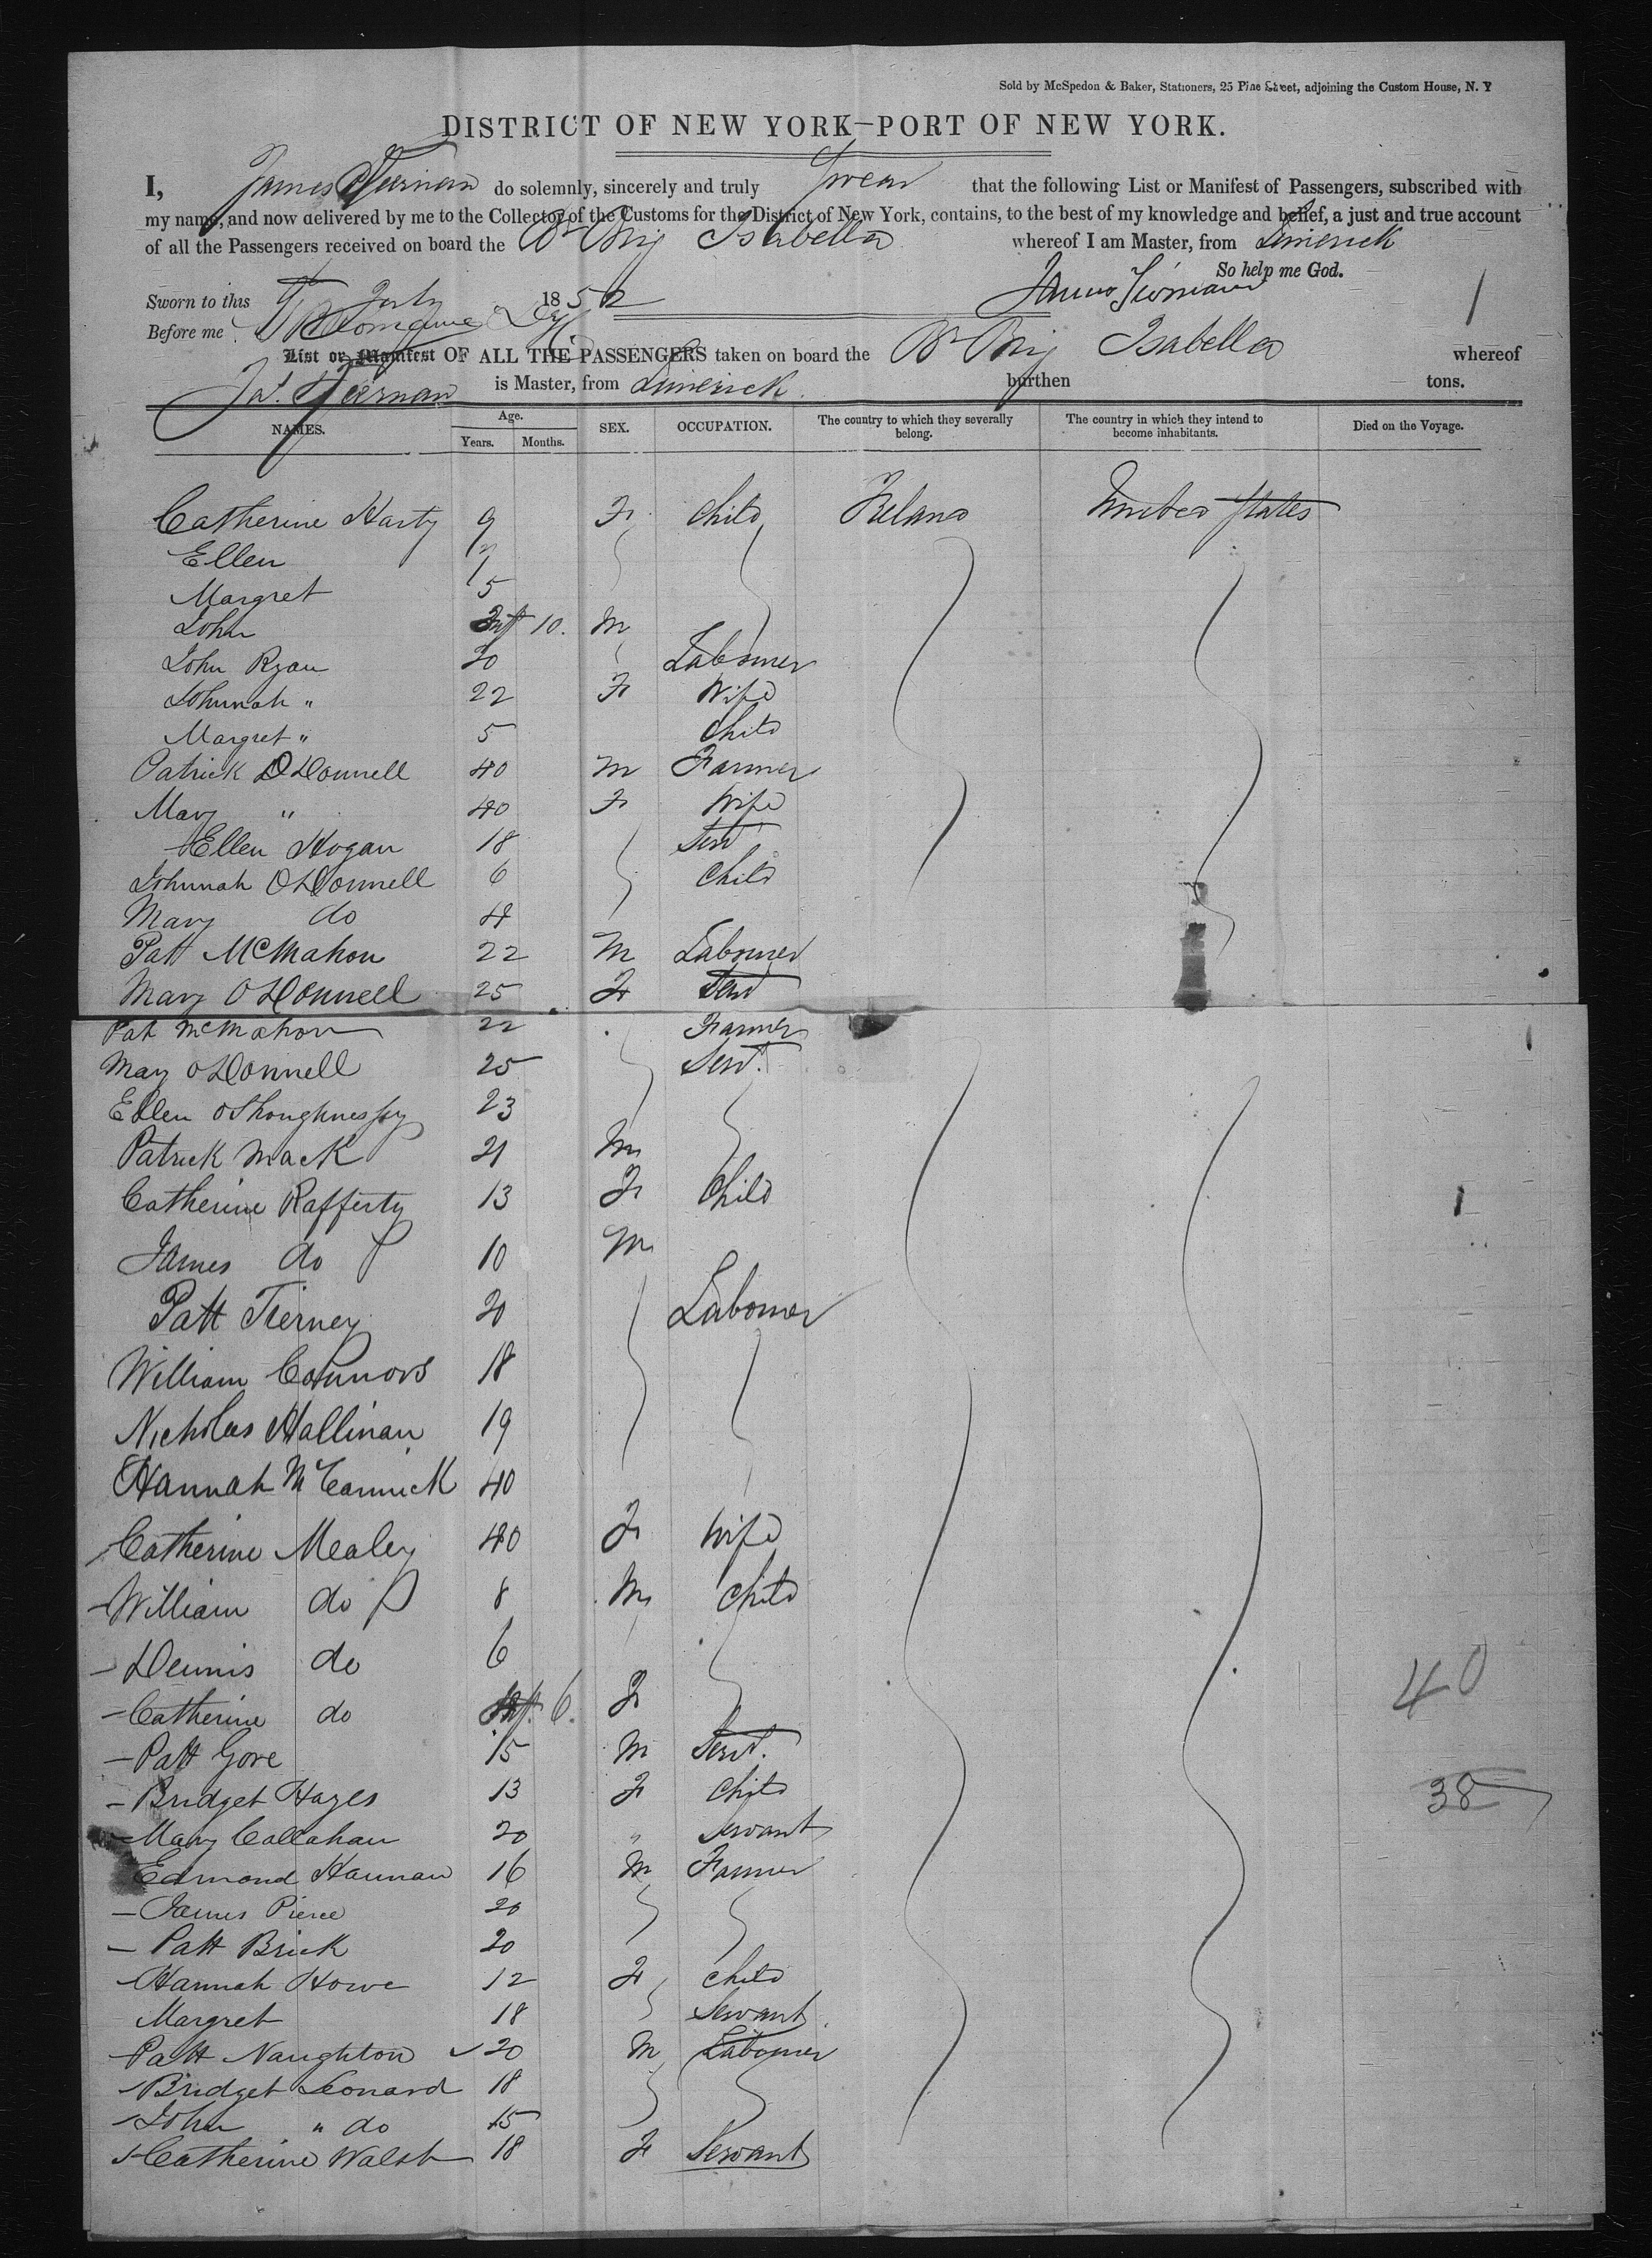 Sold by McSpedon & Baker, Stationers, 25 Pine Street, adjoining the Custom House, N. Y
DISTRICT OF NEW YORK—PORT OF NEW YORK.
I, James Tiernan do solemnly, sincerely and truly swear that the following List or Manifest of Passengers, subscribed with
my name, and now delivered by me to the Collector of the Customs for the District of New York, contains, to the best of my knowledge and belief, a just and true account
of all the Passengers received on board the Br Brig Isabella whereof I am Master, from Limerick
So help me God.
Sworn to this 1852
James Tiernan
Before me
1
List or Manifest OF ALL THE PASSENGERS taken on board the Br Brig Isabella whereof
Ja.s Tiernan is Master, from Limerick. burthen tons.
NAMES. Age. Years. Months. SEX. OCCUPATION. The country to which they severally belong. The country in which they intend to become inhabitants. Died on the Voyage.
Catherine Harty 9 F Child Ireland United States
Ellen 7
Margret 5
John Inft 10. M
John Ryan 20 Labourer
Johnnah " 22 F Wife
Margret " 5 Child
Patrick O'Donnell 40 M Farmer
Mary " 40 F Wife
Ellen Hogan 18 Servt
Johnnah O'Donnell 6 Child
Mary do 4
Patt McMahon 22 M Labourer
Mary O'Donnell 25 F Servt
Pat McMahon 22 Farmer
Mary O'Donnell 25 Servt.
Ellen O'Shoughnessy 23
Patrick Mack 21 M
Catherine Rafferty 13 F Child
James do 10 M
Patt Tierney 20 Labourer
William Connors 18
Nicholas Hallinan 19
Hannah McCormick 40
Catherine Mealey 40 F Wife
William do 8 M Child
Dennis do 6
40
Catherine do Inft. 6. F
Patt Gore 15 M Servt.
Bridget Hayes 13 F Child
38
Mary Callahan 20 " Servant
Edmond Hannan 16 M Farmer
James Pierce 20
Patt Brick 20
Hannah Howe 12 F Child
Margret 18 Servant
Patt Naughton 20 M Labourer
Bridget Leonard 18
John " do 15
Catherine Walsh 18 F Servant